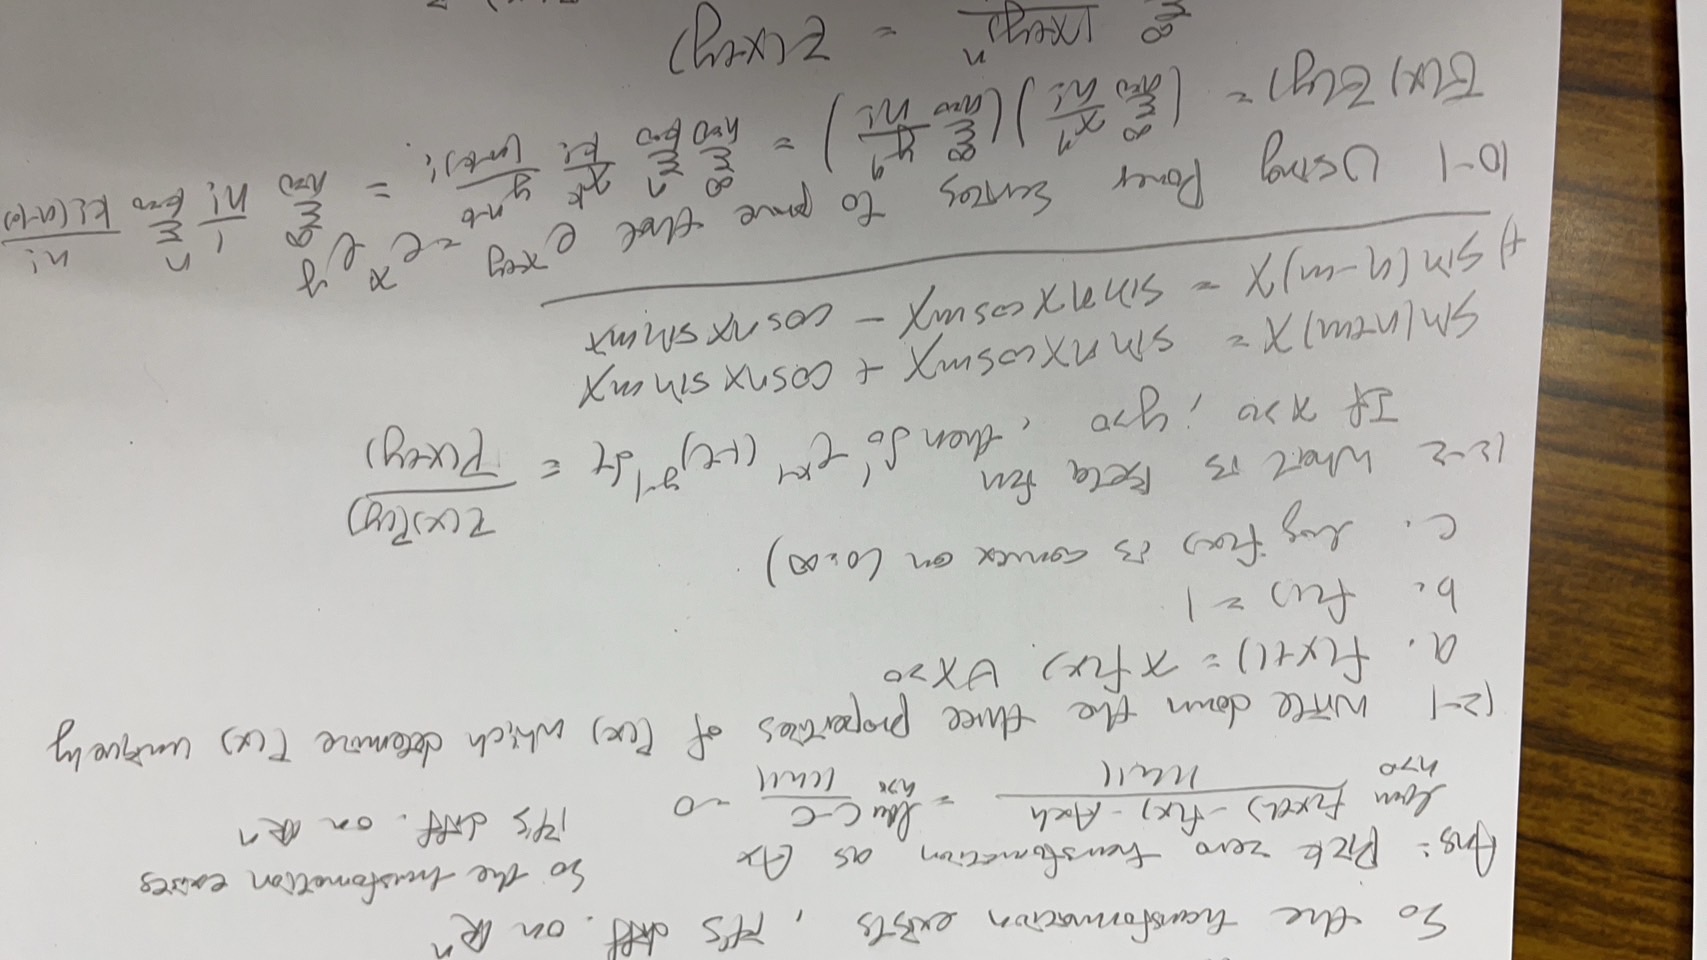 So the transformation exists, it's diff. on ℝⁿ
Ans: Pick zero transformation as Ax
So the transfomation exises
it's diff. on ℝⁿ
lim h→0 f(x+h) - f(x) - Axh / ||h|| = lim h→0 C-C / ||h|| = 0
12-1 Write down the three properties of Γ(x) which detemine Γ(x) uniquely
a. f(x+1) = x f(x), ∀x>0
b. f(1) = 1
c. log f(x) is convex on (0,∞)
12-2 What is Beta fcn
If x>0, y>0, then ∫₀¹ t^(x-1) (1-t)^(y-1) dt = Γ(x)Γ(y) / Γ(x+y)
sin(n+m)x = sin nx cos mx + cos nx sin mx
+) sin(n-m)x = sin nx cos mx - cos nx sin mx
10-1 Using Power Series to prove that e^(x+y) = e^x e^y
E(x) E(y) = (Σ_{n=0}^∞ xⁿ/n!)(Σ_{n=0}^∞ yⁿ/n!) = Σ_{n=0}^∞ Σ_{k=0}^n x^k/k! y^(n-k)/(n-k)! = Σ_{n=0}^∞ 1/n! Σ_{k=0}^n n!/k!(n-k)
Σ^∞ (x+y)ⁿ = E(x+y)